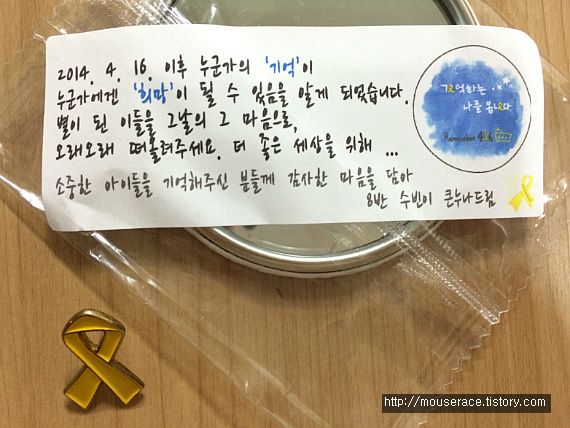 2014. 4. 16. 이후 누군가의 '기억'이
누군가에겐 '희망'이 될 수 있음을 알게 되었습니다.
별이 된 이들을 그날의 그 마음으로,
오래오래 떠올려주세요. 더 좋은 세상을 위해 ...
소중한 아이들을 기억해주신 분들께 감사한 마음을 담아
8반 수빈이 큰누나드림
기억하는
나를 봅니다
Remember 4.16
http://mouserace.tistory.com